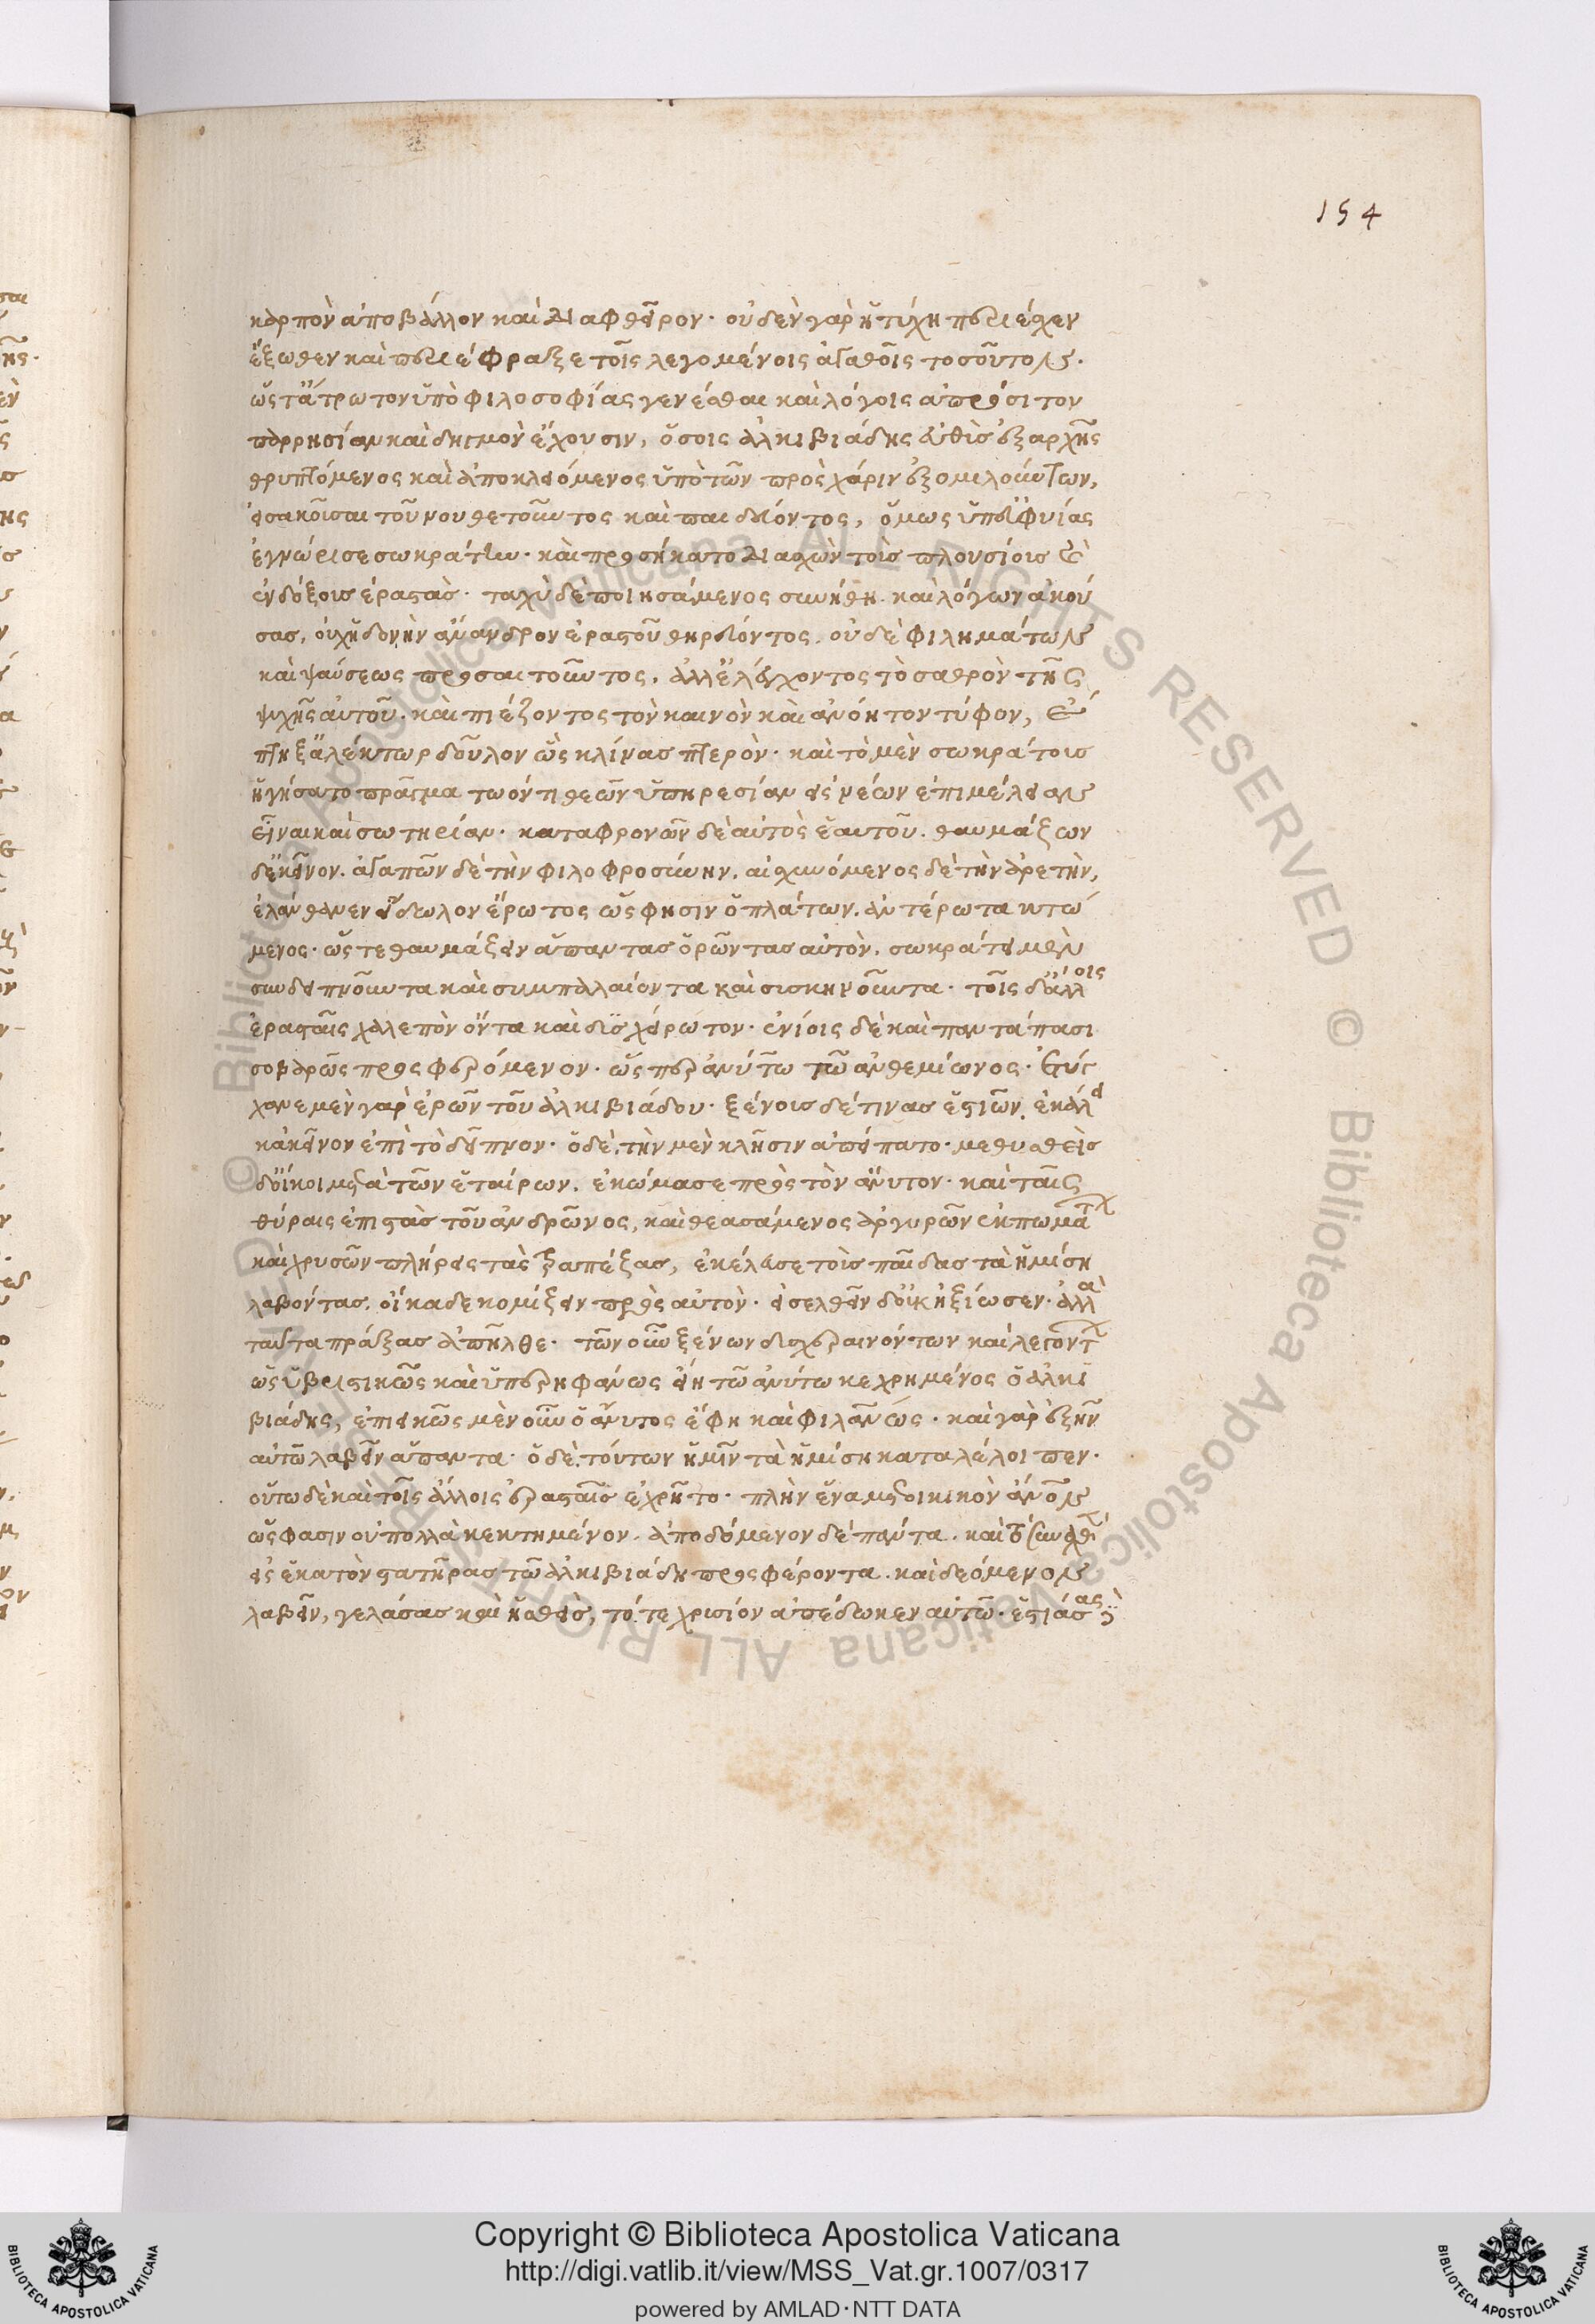 154
καρπὸν ἀποβάλλον καὶ διαφθεῖρον· οὐδὲν γὰρ ἡ τύχη περιέσχεν
ἔξωθεν καὶ περιέφραξε τοῖς λεγομένοις ἀγαθοῖς τοσοῦτον·
ὥστ' ἄτρωτον ὑπὸ φιλοσοφίας γενέσθαι καὶ λόγοις ἀπρόσιτον
παρρησίαν καὶ δηγμὸν ἔχουσιν, ὅσοις ἀλκιβιάδης εὐθὺς ἐξαρχῆς
θρυπτόμενος καὶ ἀποκλειόμενος ὑπὸ τῶν πρὸς χάριν ἐξομιλούντων,
εἰσακοῦσαι τοῦ νουθετοῦντος καὶ παιδεύοντος, ὅμως ὑπ' εὐφυίας
ἐγνώρισε σωκράτην· καὶ προσήκατο διασχὼν τοὺς πλουσίους καὶ
ἐνδόξους ἐραστάς· ταχὺ δὲ ποιησάμενος συνήθη· καὶ λόγων ἀκού
σας, οὐχ ἡδονὴν ἄνανδρον ἐραστοῦ θηρεύοντος. οὐδὲ φιλημάτων
καὶ ψαύσεως προσαιτοῦντος. ἀλλ' ἐλέγχοντος τὸ σαθρὸν τῆς
ψυχῆς αὐτοῦ· καὶ πιέζοντος τὸν καινὸν καὶ ἀνόητον τύφον, ἔ
πτηξ' ἀλέκτωρ δοῦλον ὣς κλίνας πτερὸν· καὶ τὸ μὲν σωκράτους
ἡγήσατο πρᾶγμα τωόντι θεῶν ὑπηρεσίαν εἰς νέων ἐπιμέλειαν
εἶναι καὶ σωτηρίαν· καταφρονῶν δὲ αὐτὸς ἑαυτοῦ. θαυμάζων
δ' ἐκεῖνον. ἀγαπῶν δὲ τὴν φιλοφροσύνην. αἰσχυνόμενος δὲ τὴν ἀρετὴν,
ἐλάνθανεν εἴδωλον ἔρωτος ὥς φησιν ὁ πλάτων. ἀντέρωτα κτώ
μενος· ὥστε θαυμάζειν ἅπαντας ὁρῶντας αὐτὸν. σωκράτει μὲν
συνδειπνοῦντα καὶ συμπαλαίοντα καὶ συσκηνοῦντα· τοῖς δ' ἄλλοις
ἐρασταῖς χαλεπὸν ὄντα καὶ δυσχείρωτον· ἐνίοις δὲ καὶ παντάπασι
σοβαρῶς προσφερόμενον· ὥσπερ ἀνύτω τῶ ἀνθεμίωνος· Ἐτύγ
χανε μὲν γὰρ ἐρῶν τοῦ ἀλκιβιάδου· ξένους δέ τινας ἑστιῶν. ἐκάλει
κἀκεῖνον ἐπὶ τὸ δεῖπνον· ὁ δὲ, τὴν μὲν κλῆσιν ἀπείπατο· μεθυσθεὶς
δ' οἴκοι μετὰ τῶν ἑταίρων. ἐκώμασε πρὸς τὸν ἄνυτον· καὶ ταῖς
θύραις ἐπιστὰς τοῦ ἀνδρῶνος, καὶ θεασάμενος ἀργυρῶν ἐκπωμάτων
καὶ χρυσῶν πλήρεις τὰς τραπέζας, ἐκέλευσε τοὺς παῖδας τὰ ἡμίση
λαβόντας. οἴκαδε κομίζειν πρὸς αὐτὸν· εἰσελθεῖν δ' οὐκ ἠξίωσεν· ἀλλὰ
ταῦτα πράξας ἀπῆλθε· τῶν οὖν ξένων δυσχεραινόντων καὶ λεγόντων
ὡς ὑβριστικῶς καὶ ὑπερηφάνως εἴη τῶ ἀνύτω κεχρημένος ὁ ἀλκι
βιάδης, ἐπιεικῶς μὲν οὖν ὁ ἄνυτος ἔφη καὶ φιλανως· καὶ γὰρ ἐξῆν
αὐτῶ λαβεῖν ἅπαντα· ὁ δὲ, τούτων ἡμῖν τὰ ἡμίση καταλέλοιπεν·
οὕτω δὲ καὶ τοῖς ἄλλοις ἐρασταῖς ἐχρῆτο· πλὴν ἕνα μετοικικὸν ἄνον
ὥς φασιν οὐ πολλὰ κεκτημένον. ἀποδόμενον δὲ πάντα. καὶ τὸ συναχθὲν
εἰς ἑκατὸν στατῆρας τῶ ἀλκιβιάδη προσφέροντα. καὶ δεόμενον
λαβεῖν, γελάσας καὶ ἡσθεὶς, τό τε χρυσίον ἀπέδωκεν αὐτῶ· ἑστιάσας
Copyright © Biblioteca Apostolica Vaticana
http://digi.vatlib.it/view/MSS_Vat.gr.1007/0317
powered by AMLAD·NTT DATA